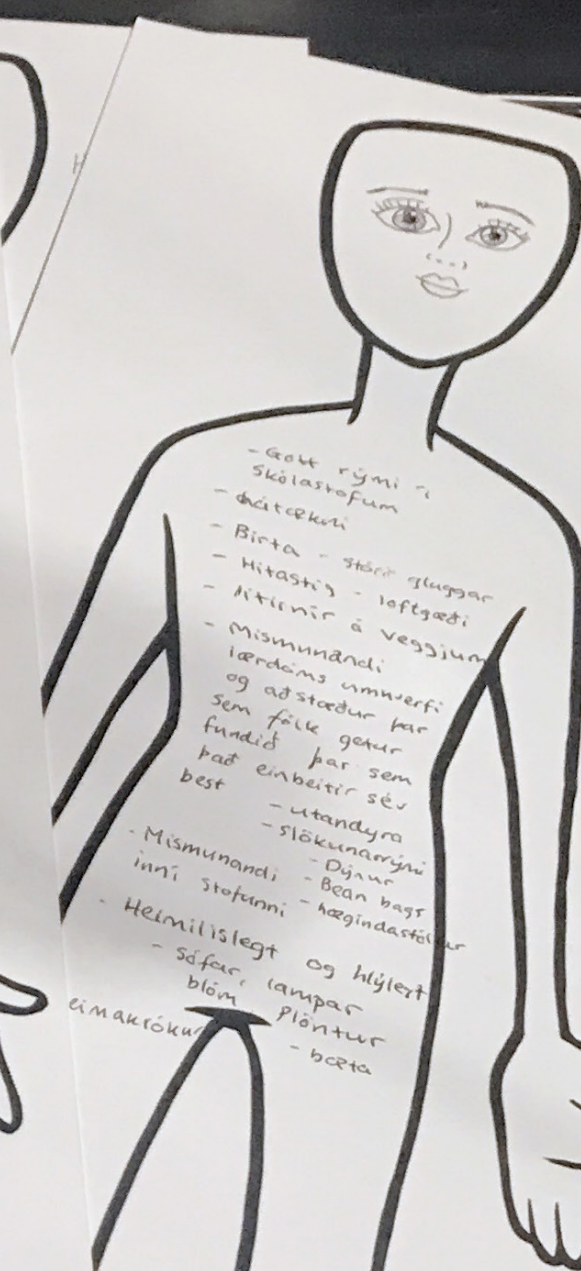 - Gott rými í
skólastofum
- Hátækni
- Birta - stórir gluggar
- Hitastig - loftgæði
- litirnir á veggjum
- Mismunandi
lærdóms umhverfi
og aðstæður þar
sem fólk getur
fundið þar sem
það einbeitir sér
best
- utandyra
- slökunarrými
- Dýnur
- Bean bags
- hægindastólar
- Mismunandi
inní stofunni
- Heimilislegt og hlýlegt
- sófar, lampar
blóm plöntur
- bæta
H